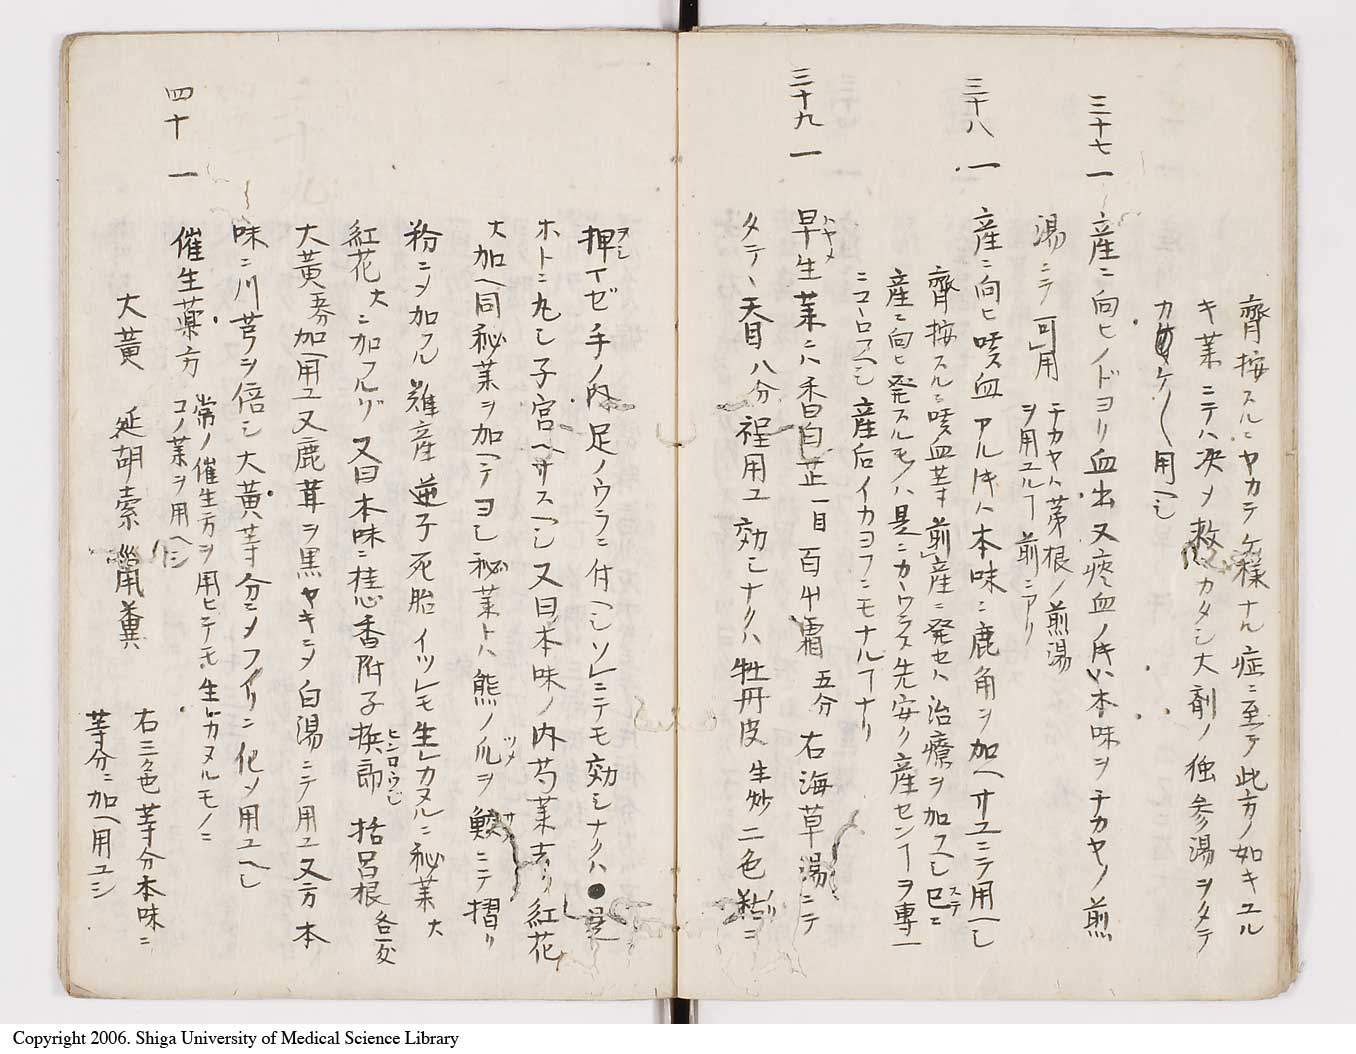 齊按スルニヤカラテケ様ナル症ニ至テ此方ノ如キユル
キ薬ニテハ决メ救イカタシ大剤ノ独参湯ヲタテ
カケ〱用ヘシ
三十七 一 産ニ向ヒノドヨリ血出又瘀血ノ時ハ本味ヲチカヤノ煎
湯ニテ可用 チカヤハ茅根ノ煎湯
ヲ用ユルヿ前ニアリ
三十八 一 産ニ向ヒ咳血アル時ハ本味ニ鹿角ヲ加ヘサユニテ用ヘシ
齊按スルニ咳血等前産ニ発セハ治療ヲ加フヘシ已ニ
産ニ向ヒ発スルモノハ是ニカヽワラス先安ク産センヿヲ專一
ニコヽロフヘシ産后イカヨフニモナルヿナリ
三十九 一 早生薬ニハ香白芷一目 百草霜 五分 右海草湯ニテ
タテヽ天目八分程用ユ効シナクハ牡丹皮生炒二色粘ニ
押マゼ手ノ内足ノウラニ付ヘシソレニテモ効シナクハ●是
ホトニ丸シ子宮ヘサスヘシ又曰本味ノ内芍薬去リ紅花
大加ヘ同秘薬ヲ加ヘテヨシ秘薬トハ熊ノ爪ヲ鮫ニテ摺リ
粉ニメ加フル難産逆子死胎イツレモ生レカヌルニ秘薬大
紅花大ニ加フルゾ又曰本味ニ桂心香附子梹郎 括呂根 各一匁
大黄蒡加ヘ用ユ又鹿茸ヲ黒ヤキニメ白湯ニテ用ユ又方本
味ニ川芎ヲ倍シ大黄等分ニメフリニ化メ用ユヘシ
四十 一 催生薬方 常ノ催生方ヲ用ヒテモ生レカヌルモノニ
コノ薬ヲ用ヘシ
大黄 延胡索 鼠糞 右三色等分本味ニ
等分ニ加ヘ用ユシ
Copyright 2006. Shiga University of Medical Science Library